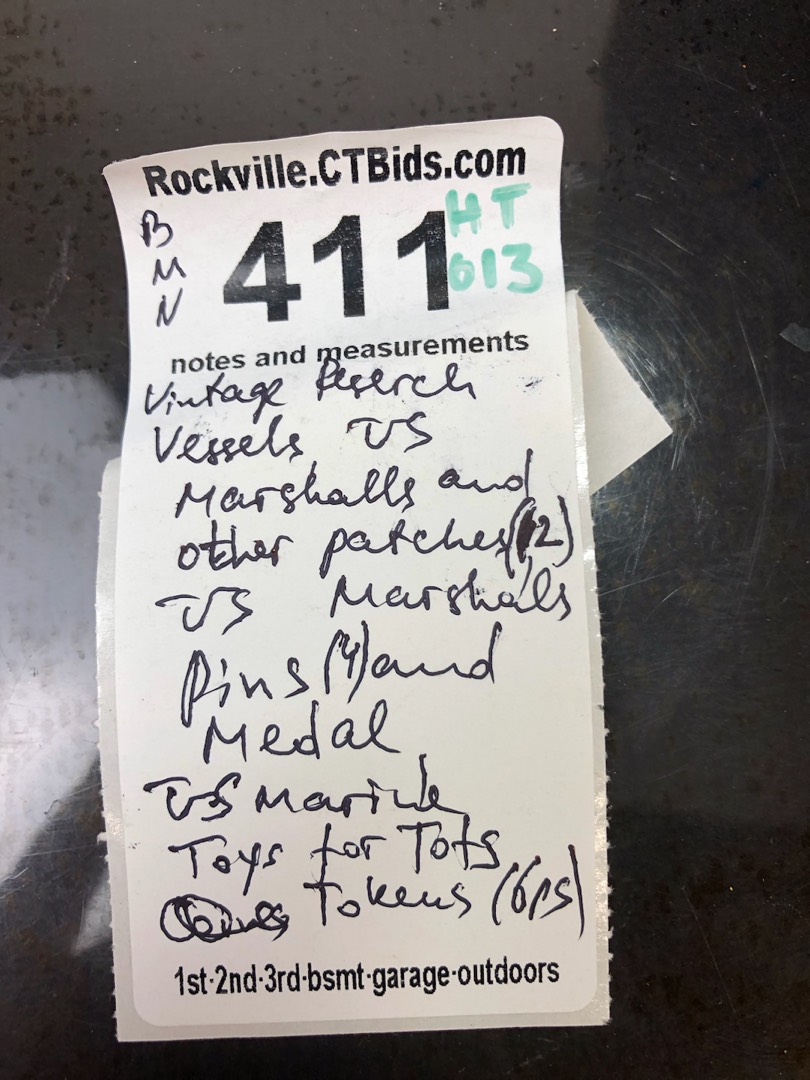 Rockville.CTBids.com
B
M
N
411
HT
013
notes and measurements
Vintage Reserch
Vessels, US
Marshalls and
other patches (12)
US Marshals
pins (4) and
Medal
US Marine
Toys for Tots
Tokens (6ps)
1st·2nd·3rd·bsmt·garage·outdoors